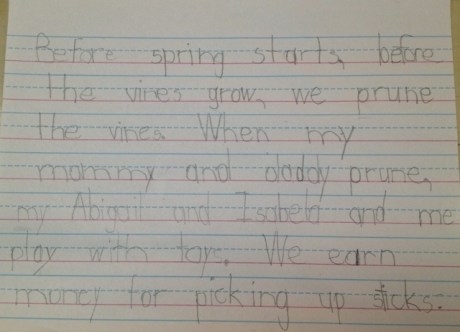 Before spring starts, before
the vines grow, we prune
the vines. When my
mommy and daddy prune,
my Abigail and Isabela and me
play with toys. We earn
money for picking up sticks.